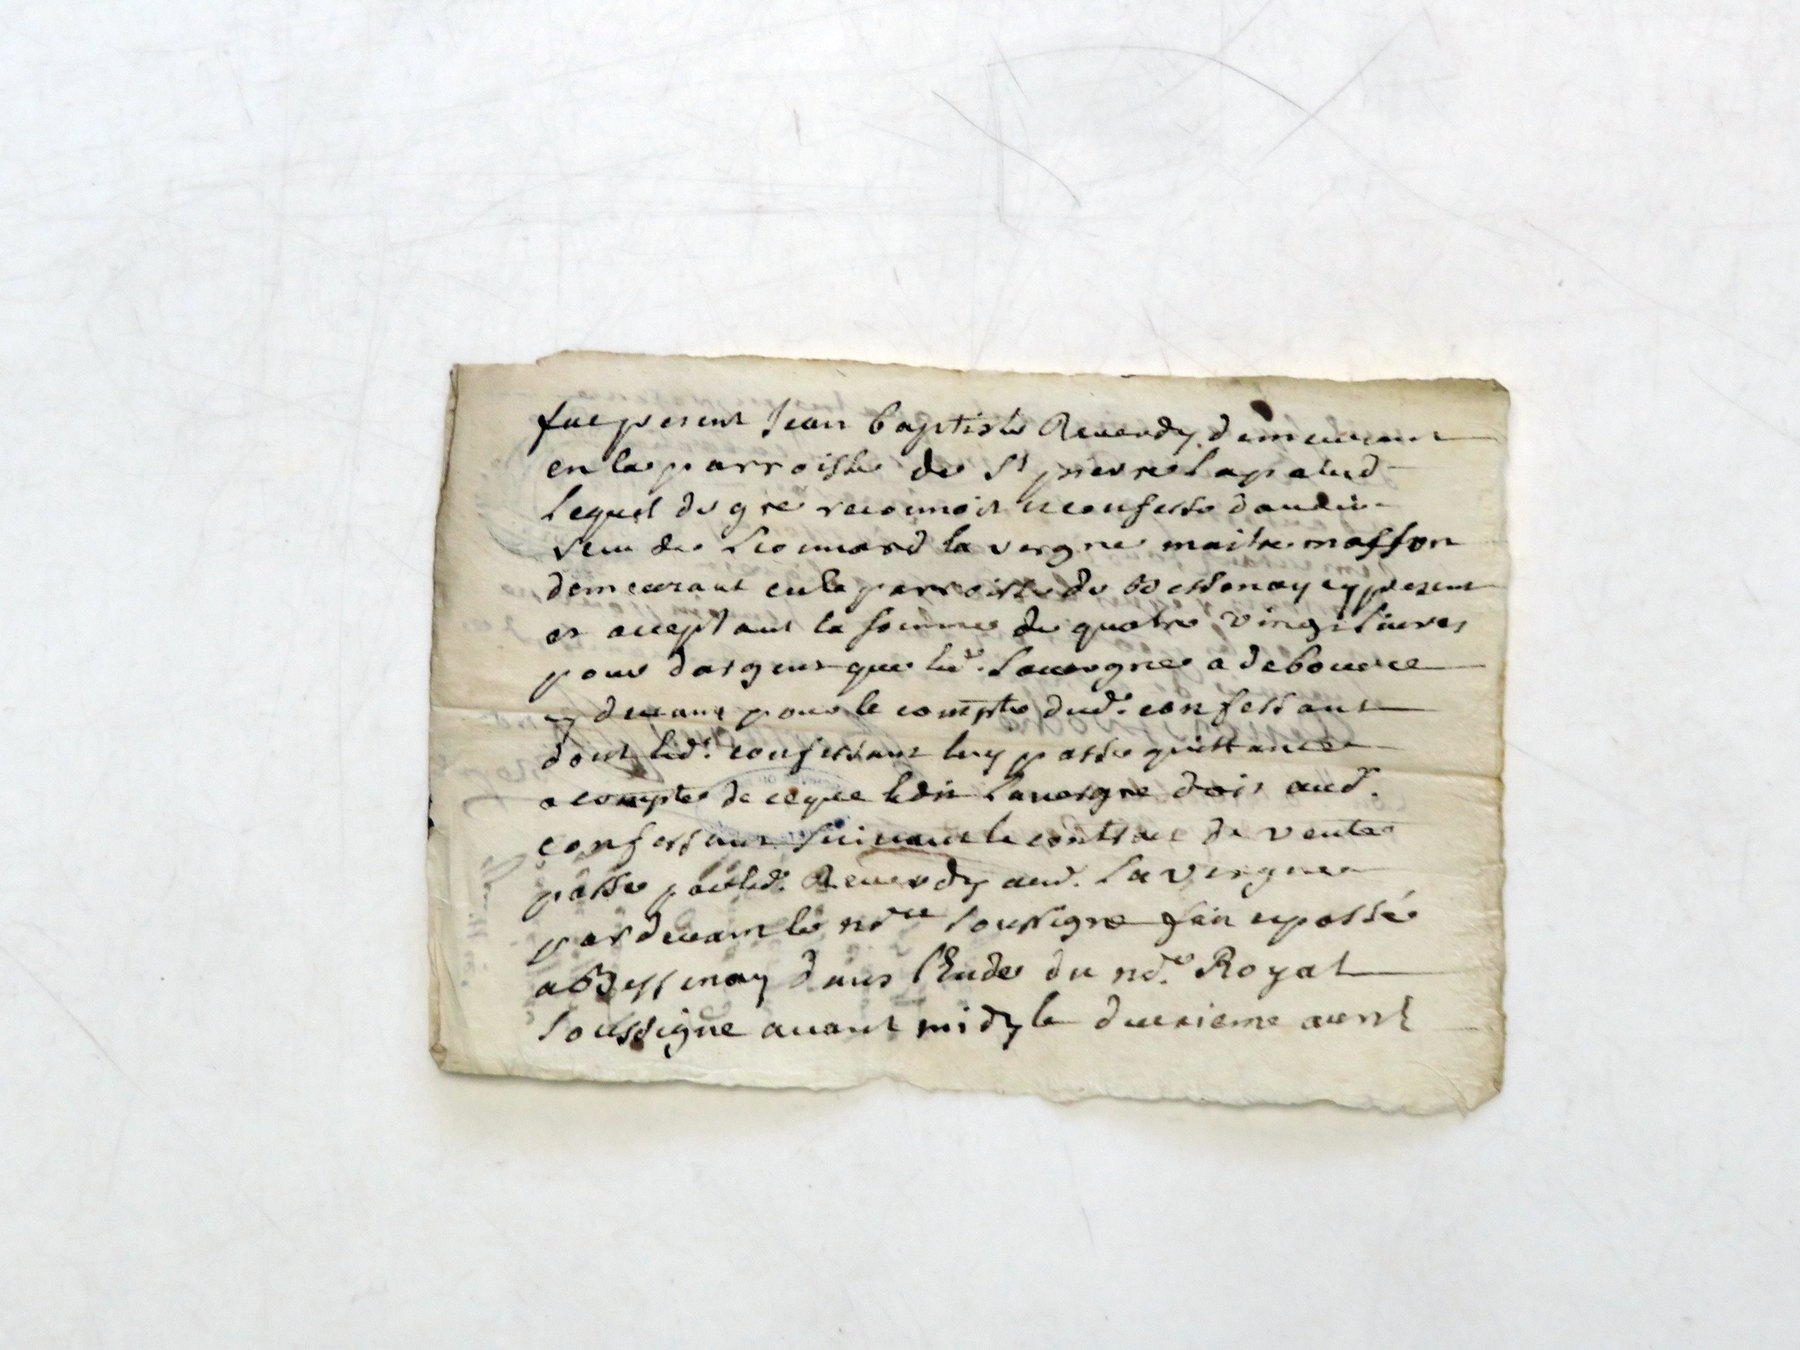 fut present Jean baptiste Reuerdy demeurant
en la parroisse de St pierre lapalud
lequel de gré reconnoit et confesse dauoir
receu de Leonnard la vergne maitre masson
demeurant en la parroisse de Bessenay cy present
et aceptant la somme de quatre vingt liures
pour dargent que led. Lauergne a debource
cy deuant pour le compte dud. confessant
dont led. confessant luy passe quittance
a compte de ce que ledit Lauergne doit aud.
confessant suiuant le contrac de vente
passe par led. Reuerdy aud. Lavergne
par deuant le no.re soussigne fait et passé
a Bessenay dans l'Etude du no.re Royal
soussigne auant midy le deuxieme auril